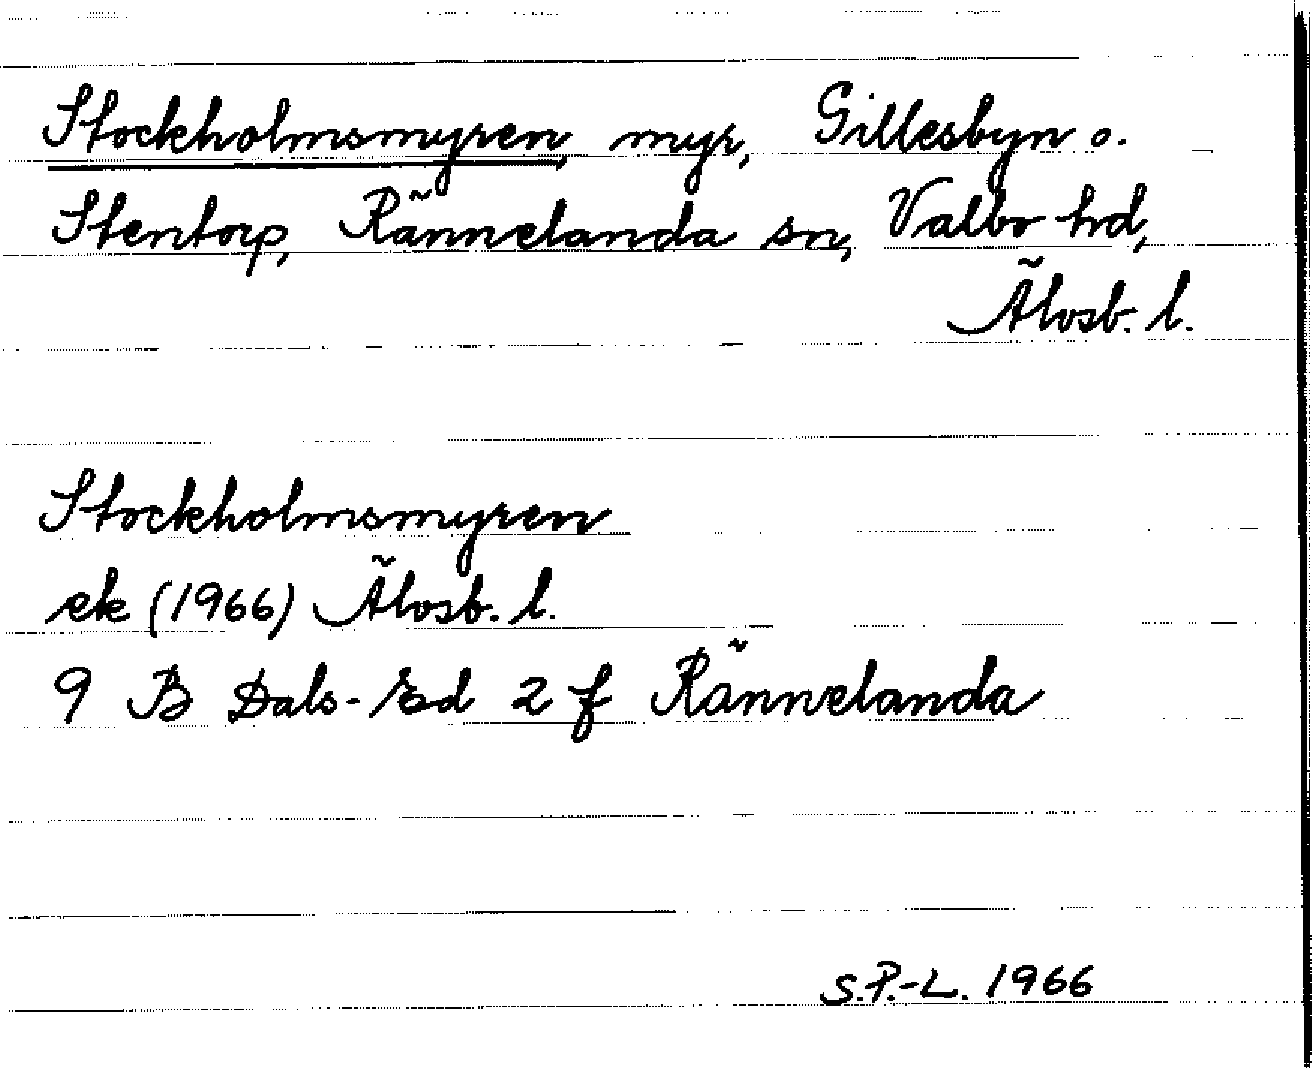 Stockholmsmyren, myr, Gillesbyn o.
Stentorp, Rännelanda sn, Valbo hd,
Älvsb. l.
Stockholmsmyren
ek (1966) Älvsb. l.
9 B Dals-Ed 2 f Rännelanda
S.P.-L. 1966